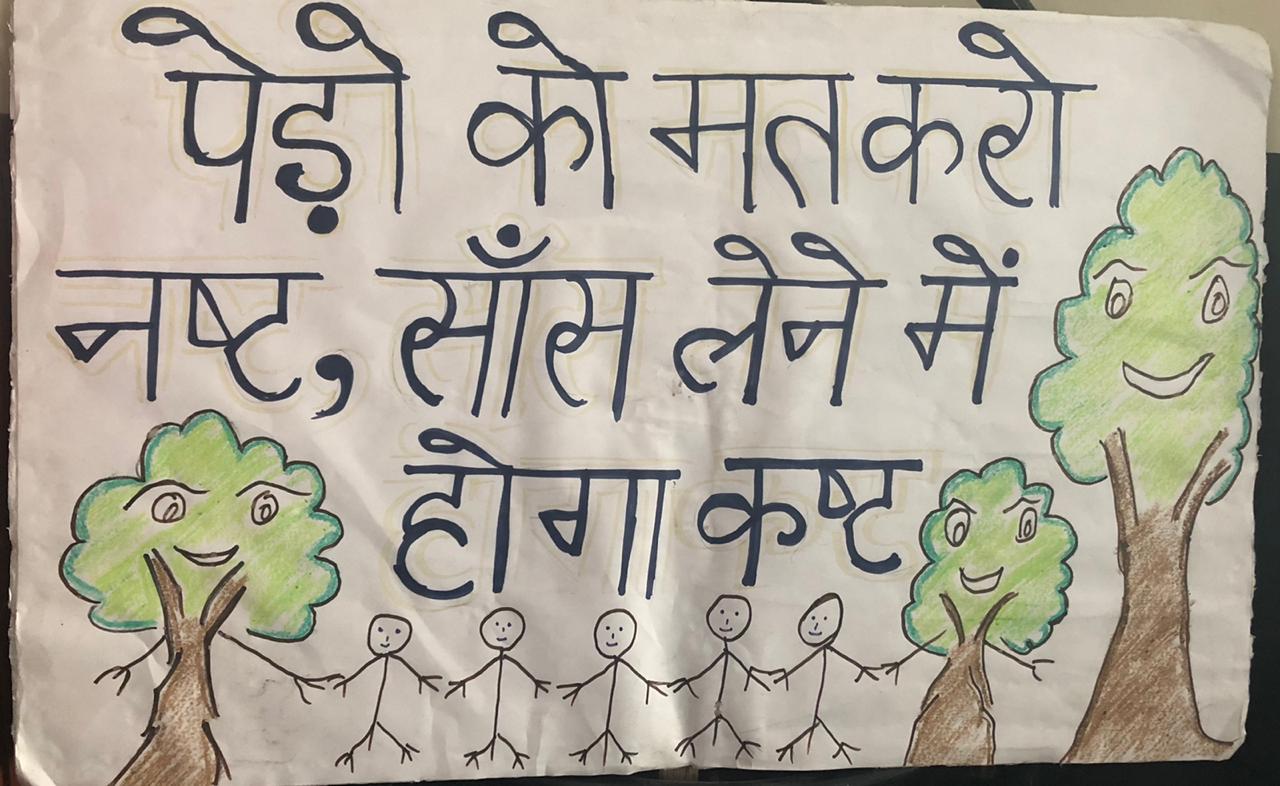 पेड़ो को मत करो
नष्ट, साँस लेने में
होगा कष्ट